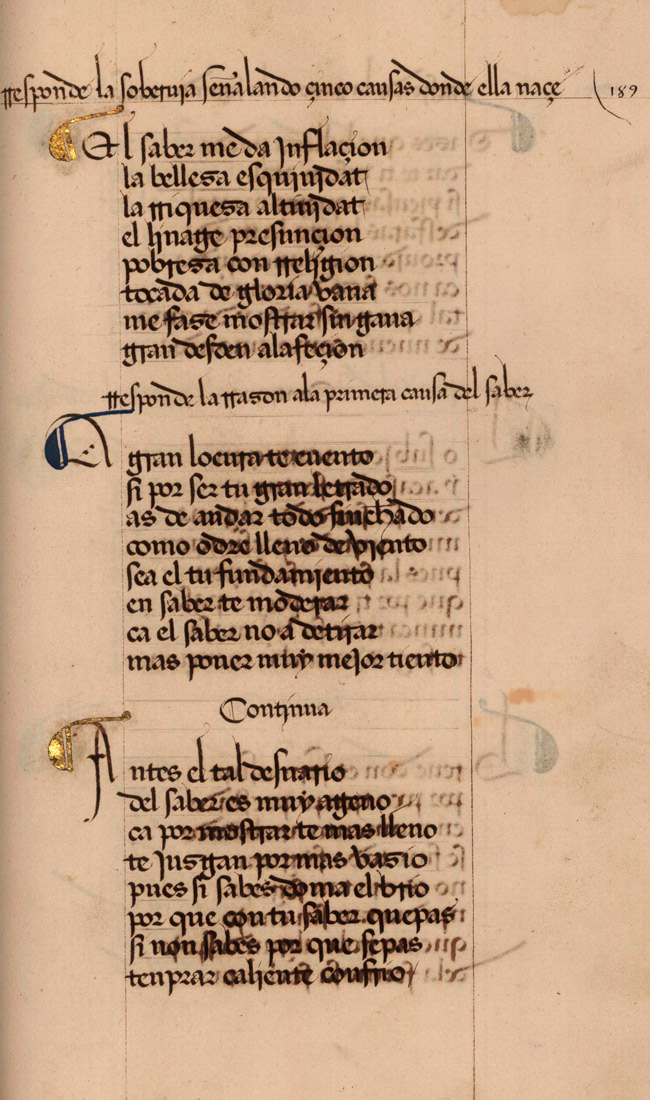 rresponde la soberuia señalando çinco causas donde ella naçe
189
El saber me da Jnflaçion
la bellesa esquiuidat
la rriquesa altiuidat
el linage presunçion
pobresa con rreligion
tocada de gloria vana
me fase mostrar sin gana
gran desden ala feçion
rresponde la rrason ala primera causa del saber
A gran locura te cuento
si por ser tu gran letrado
as de andar todo finchado
como odre lleno de viento
sea el tu fundamiento
en saber te moderar
ca el saber no a de tirar
mas poner muy mejor tiento
Continua
Antes el tal desuario
del saber es muy ageno
ca por mostrar te mas lleno
te Jusgan por mas vasio
pues si sabes doma el brio
por que con tu saber quepas
si non sabes por que sepas
tenprar caliente con frio